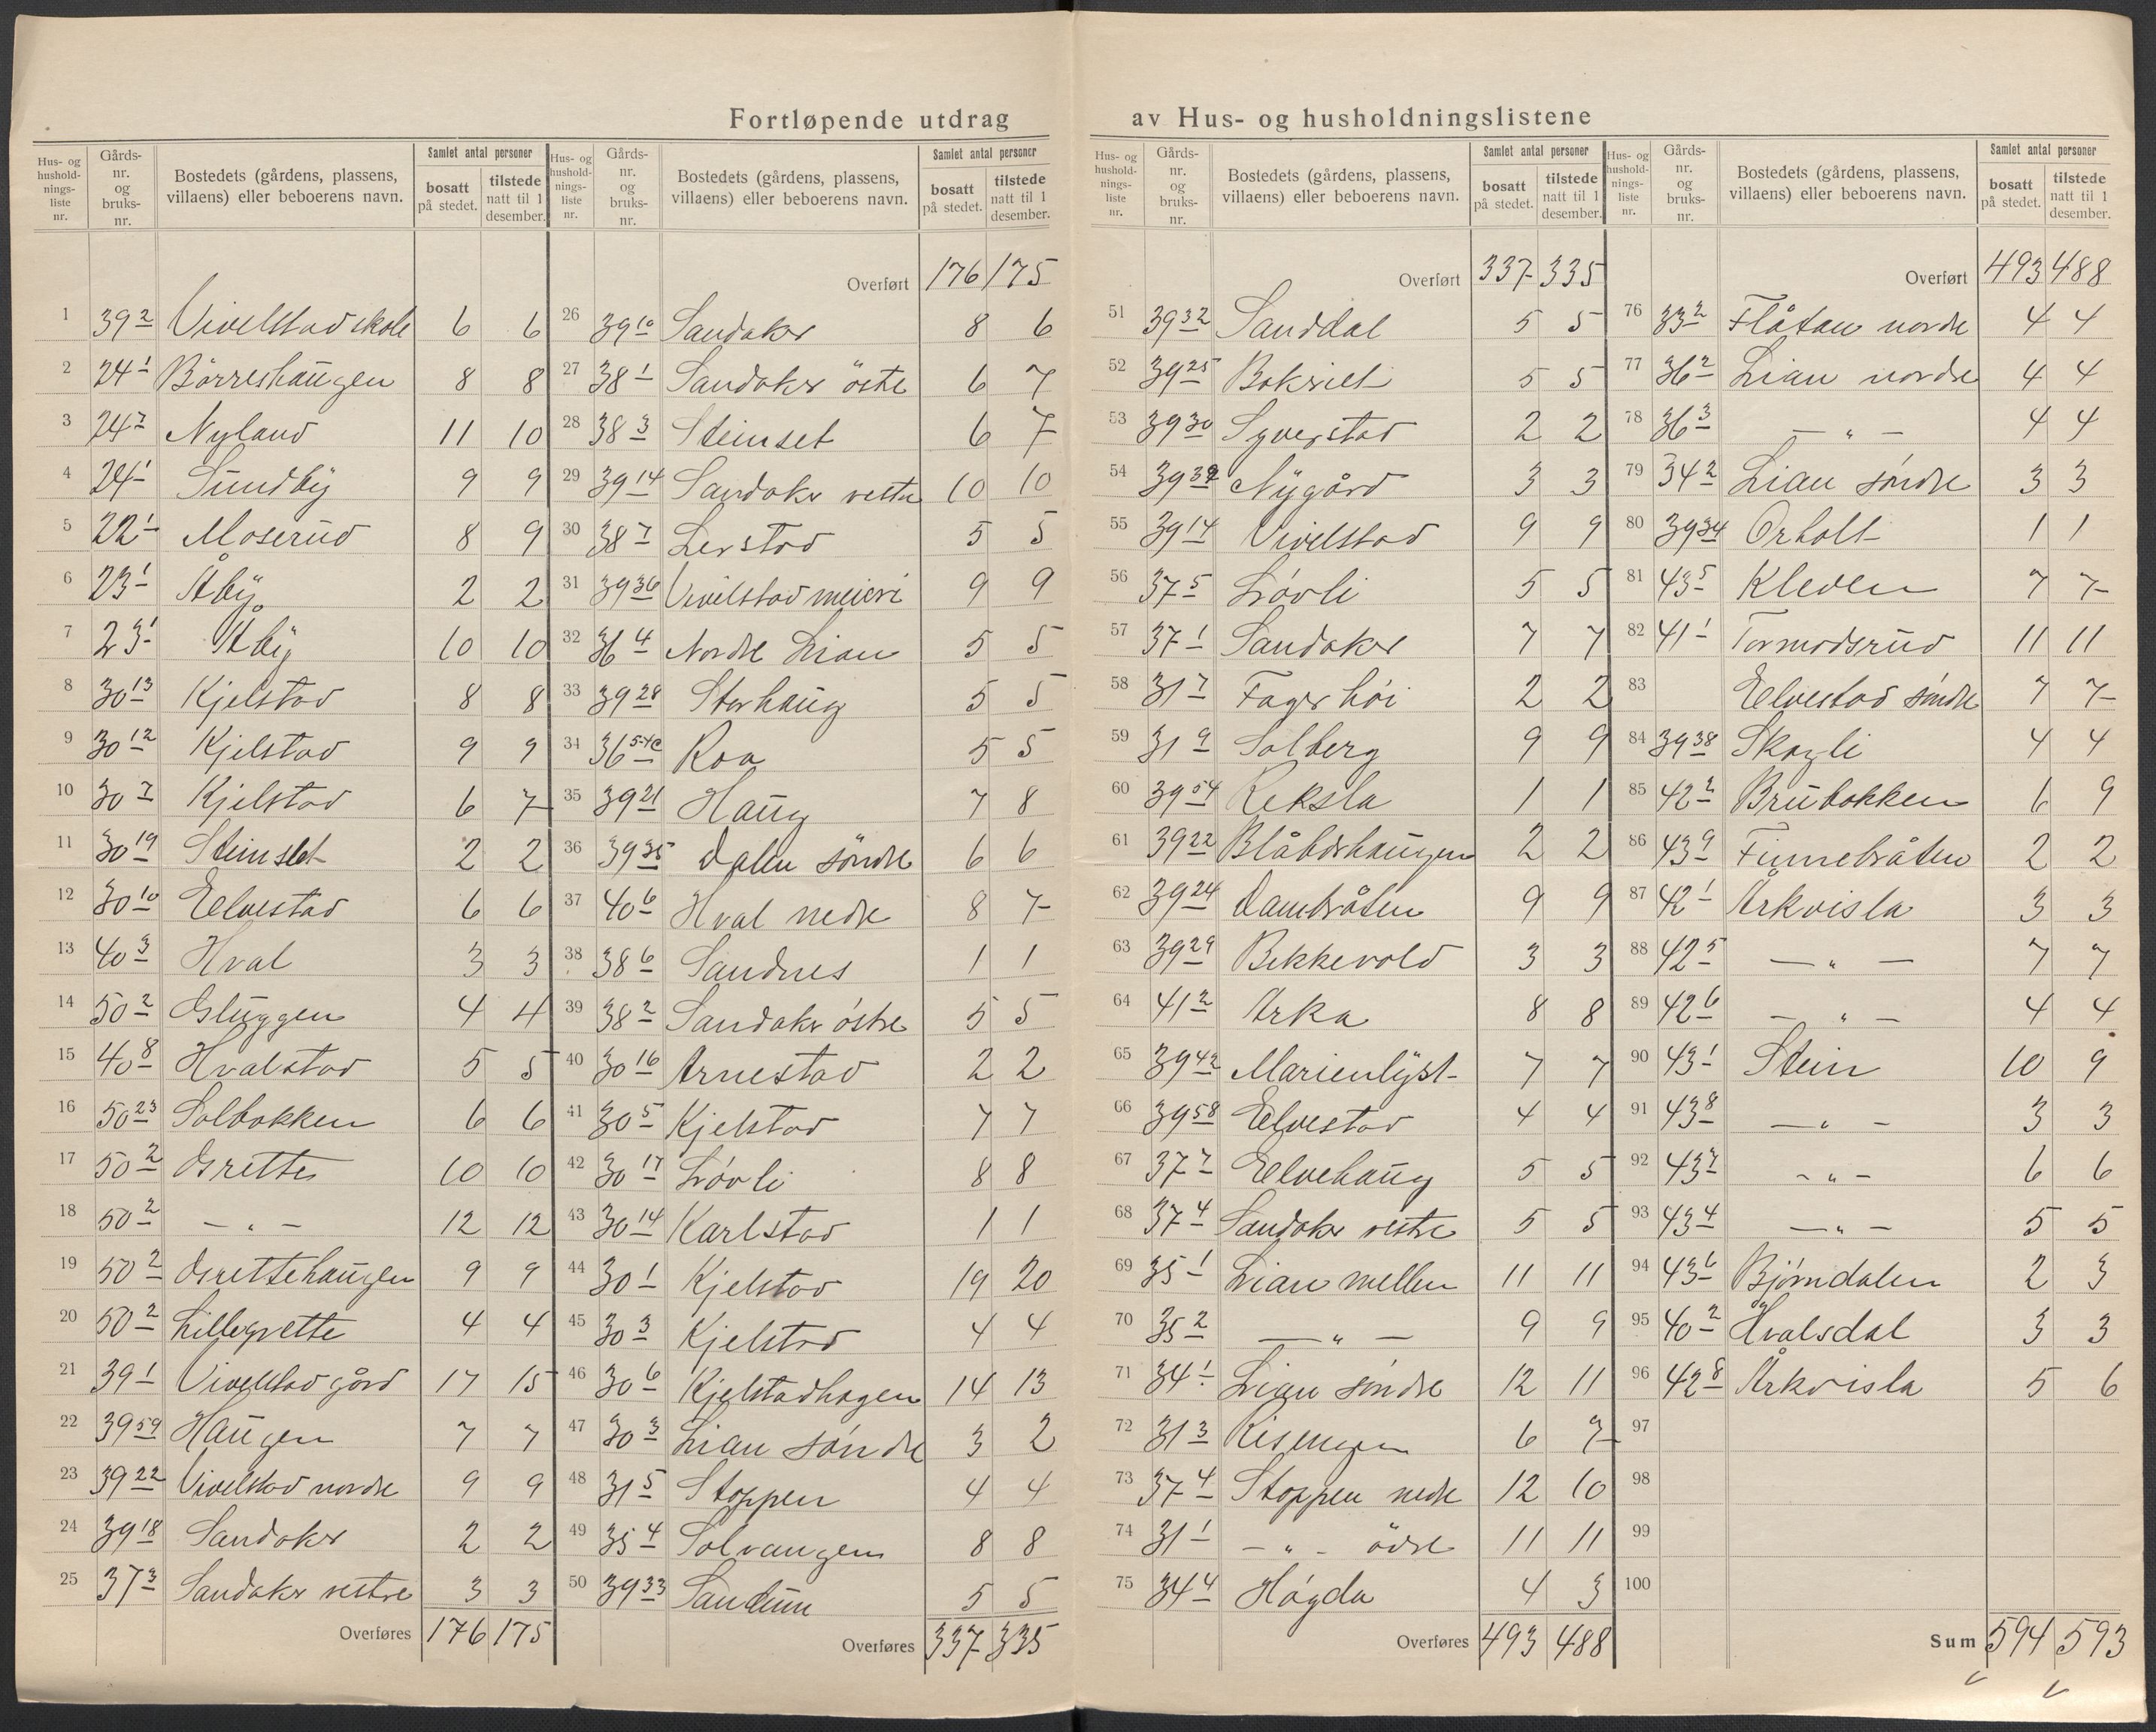 Fortløpende utdrag av Hus- og husholdningslistene
Hus- og husholdnings-liste nr. Gårds-nr. og bruks-nr. Bostedets (gårdens, plassens, villaens) eller beboerens navn. Samlet antal personer bosatt på stedet. tilstede natt til 1 desember.
1 39/2 Vivelstad skole 6 6
2 24/1 Børreshaugen 8 8
3 24/2 Nyland 11 10
4 24/1 Sundby 9 9
5 22/1 Moserud 8 9
6 23/1 Åby 2 2
7 23/1 Åby 10 10
8 30/13 Kjelstad 8 8
9 30/12 Kjelstad 9 9
10 30/7 Kjelstad 6 7
11 30/19 Steinslet 2 2
12 30/10 Eelvestad 6 6
13 40/3 Hval 3 3
14 50/2 Gluggen 4 4
15 40/8 Hvalstad 5 5
16 50/23 Solbakken 6 6
17 50/2 Grette 10 10
18 50/2 — " — 12 12
19 50/2 Grettehaugen 9 9
20 50/2 Lillegrette 4 4
21 39/1 Vivelstad gård 17 15
22 39/59 Haugen 7 7
23 39/22 Vivelstad nordre 9 9
24 39/18 Sandaker 2 2
25 37/3 Sandaker vestre 3 3
Overføres 176 175
Hus- og husholdnings-liste nr. Gårds-nr. og bruks-nr. Bostedets (gårdens, plassens, villaens) eller beboerens navn. Samlet antal personer bosatt på stedet. tilstede natt til 1 desember.
Overført 176 175
26 39/10 Sandaker 8 6
27 38/1 Sandaker östre 6 7
28 38/3 Steinset 6 7
29 39/14 Sandaker vestre 10 10
30 38/7 Lerstad 5 5
31 39/36 Vivelstad meieri 9 9
32 36/4 Nordre Lian 5 5
33 39/28 Storhaug 5 5
34 36/5-4c Roa 5 5
35 39/21 Haug 7 8
36 39/35 Dalen søndre 6 6
37 40/6 Hval nedre 8 7
38 38/6 Sandnes 1 1
39 38/2 Sandaker östre 5 5
40 30/16 Arnestad 2 2
41 30/5 Kjelstad 7 7
42 30/17 Løvli 8 8
43 30/14 Karlstad 1 1
44 30/1 Kjelstad 19 20
45 30/3 Kjelstad 4 4
46 30/6 Kjelstadhagen 14 13
47 30/3 Lian søndre 3 2
48 31/5 Stoppen 4 4
49 35/4 Solvangen 8 8
50 39/33 Sandum 5 5
Overføres 337 335
Hus- og husholdnings-liste nr. Gårds-nr. og bruks-nr. Bostedets (gårdens, plassens, villaens) eller beboerens navn. Samlet antal personer bosatt på stedet. tilstede natt til 1 desember.
Overført 337 335
51 39/32 Sanddal 5 5
52 39/25 5 5
53 39/30 Syverstad 2 2
54 39/39 Nygård 3 3
55 39/14 Vivelstad 9 9
56 37/5 Løvli 5 5
57 37/1 Sandaker 7 7
58 31/7 Fagerhøi 2 2
59 31/9 Solberg 9 9
60 39/54 Reksla 1 1
61 39/22 2 2
62 39/24 Dambråten 9 9
63 39/29 Bekkevold 3 3
64 41/2 Arka 8 8
65 39/42 Marienlyst 7 7
66 39/58 Eelvestad 4 4
67 37/7 Eelvehaug 5 5
68 37/4 Sandaker vestre 5 5
69 35/1 Lian mellem 11 11
70 35/2 — " — 9 9
71 34/1 Lian søndre 12 11
72 31/3 Risengen 6 7
73 37/4 Stoppen nedre 12 10
74 31/1 — " — 11 11
75 34/4 Høgda 4 3
Overføres 493 488
Hus- og husholdnings-liste nr. Gårds-nr. og bruks-nr. Bostedets (gårdens, plassens, villaens) eller beboerens navn. Samlet antal personer bosatt på stedet. tilstede natt til 1 desember.
Overført 493 488
76 33/2 Flåtan nordre 4 4
77 36/2 Lian nordre 4 4
78 36/3 — " — 4 4
79 34/2 Lian søndre 3 3
80 39/34 Orholt 1 1
81 43/5 Kleven 7 7
82 41/1 Tormodsrud 11 11
83 Eelvestad søndre 7 7
84 39/38 Skogli 4 4
85 42/2 Brubakken 6 9
86 43/9 Finnebråten 2 2
87 42/1 Arkvisla 3 3
88 42/5 — " — 7 7
89 42/6 — " — 4 4
90 43/1 Stein 10 9
91 43/8 — " — 3 3
92 43/7 — " — 6 6
93 43/4 — " — 5 5
94 43/6 Bjørndalen 2 3
95 40/2 Hvalsdal 3 3
96 42/8 Arkvisla 5 6
97
98
99
100
Sum 594 593